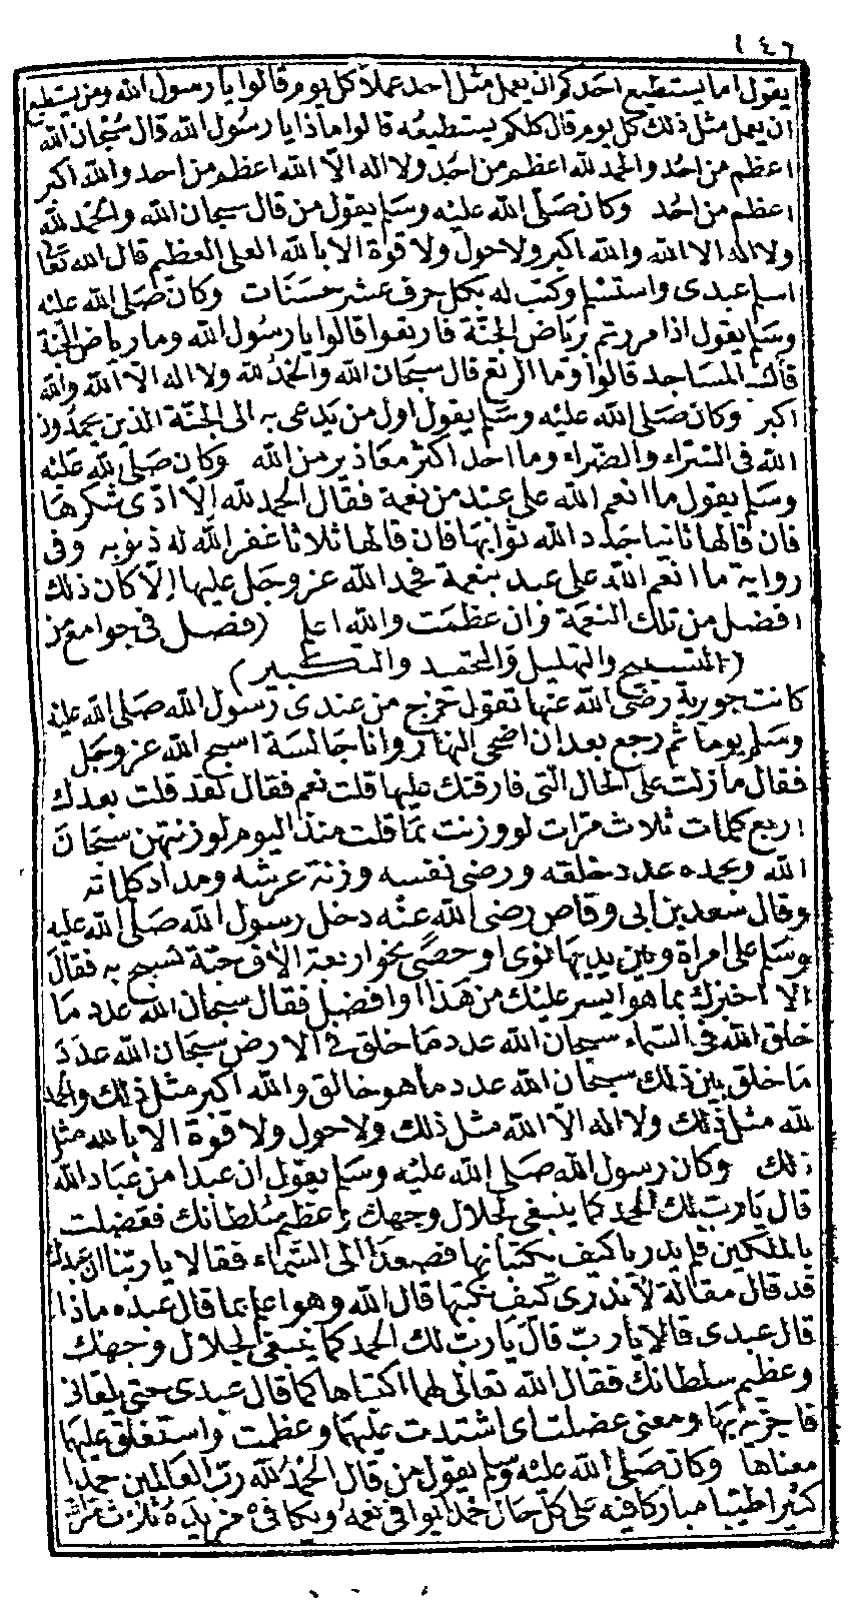 ١٤٦
يقول اما يستطيع احدكم ان يعمل مثل احد عملا كل يوم قالوا يا رسول الله ومن يستطيع
ان يعمل مثل ذلك كل يوم قال كلكم يستطيعه قالوا ماذا يا رسول الله قال سبحان الله
اعظم من احد والحمد لله اعظم من احد ولا اله الا الله اعظم من احد والله اكبر
اعظم من احد وكان صلى الله عليه وسلم يقول من قال سبحان الله والحمد لله
ولا اله الا الله والله اكبر ولا حول ولا قوة الا بالله العلي العظيم قال الله تعالى
اسلم عبدى واستسلم وكتب له بكل حرف عشر حسنات وكان صلى الله عليه
وسلم يقول اذا مررتم برياض الجنة فارتعوا قالوا يا رسول الله وما رياض الجنة
قال المساجد قالوا وما الرتع قال سبحان الله والحمد لله ولا اله الا الله والله
اكبر وكان صلى الله عليه وسلم يقول اول من يدعى به الى الجنة الذين يحمدون
الله فى السراء والضراء وما احد اكثر معاذير من الله وكان صلى الله عليه
وسلم يقول ما انعم الله على عبد من نعمة فقال الحمد لله الا ادى شكرها
فان قالها ثانيا جدد الله ثوابها فان قالها ثلاثا غفر الله له ذنوبه وفى
رواية ما انعم الله على عبد بنعمة فحمد الله عز وجل عليها الا كان ذلك
افضل من تلك النعمة وان عظمت والله اعلم (فصل فى جوامع من
(التسبيح والتهليل والتحميد والتكبير)
كانت جويرية رضى الله عنها تقول خرج من عندى رسول الله صلى الله عليه
وسلم يوما ثم رجع بعد ان اضحى النهار وانا جالسة اسبح الله عز وجل
فقال ما زلت على الحال التى فارقتك عليها قلت نعم فقال لقد قلت بعدك
اربع كلمات ثلاث مرات لو وزنت بما قلت منذ اليوم لوزنتهن سبحان
الله وبحمده عدد خلقه ورضى نفسه وزنة عرشه ومداد كلماته
وقال سعد بن ابى وقاص رضى الله عنه دخل رسول الله صلى الله عليه
وسلم على امراة وبين يديها نوى او حصى نحو اربعة الاف حبة تسبح به فقال
الا اخبرك بما هو ايسر عليك من هذا او افضل فقال سبحان الله عدد ما
خلق الله فى السماء سبحان الله عدد ما خلق فى الارض سبحان الله عدد
ما خلق بين ذلك سبحان الله عدد ما هو خالق والله اكبر مثل ذلك والحمد
لله مثل ذلك ولا اله الا الله مثل ذلك ولا حول ولا قوة الا بالله مثل
ذلك وكان رسول الله صلى الله عليه وسلم يقول ان عبدا من عباد الله
قال يا رب لك الحمد كما ينبغى لجلال وجهك وعظيم سلطانك فعضلت
بالملكين فلم يدريا كيف يكتبانها فصعدا الى السماء فقالا يا ربنا ان عبدك
قد قال مقالة لا ندرى كيف نكتبها قال الله وهو اعلم بما قال عبده ماذا
قال عبدى قالا يا رب قال يا رب لك الحمد كما ينبغى لجلال وجهك
وعظيم سلطانك فقال الله تعالى لهما اكتباها كما قال عبدى حتى يلقانى
فاجزيه بها ومعنى عضلت اى اشتدت عليهما وعظمت واستغلق عليهما
معناها وكان صلى الله عليه وسلم يقول من قال الحمد لله رب العالمين حمدا
كثيرا طيبا مباركا فيه على كل حال حمدا يوافى نعمه ويكافئ مزيده ثلاث مرات